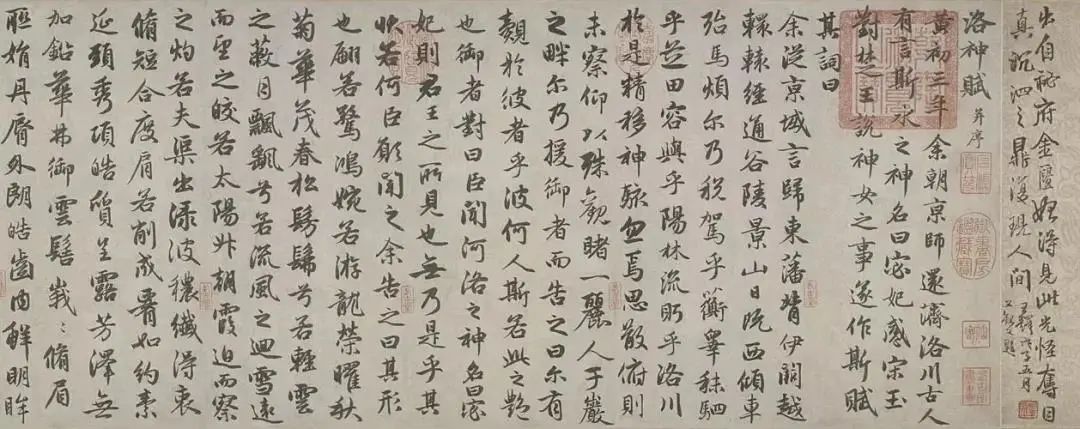 出自祕府金匱 得見此光怪奪目
真沉泗之鼎復現人間
戊子五月
洛神賦 并序
黃初三年余朝京師還濟洛川古人
有言斯水之神名曰宓妃感宋玉
對楚王說神女之事遂作斯賦
其詞曰
余從京域言歸東藩背伊闕越
轘轅經通谷陵景山日既西傾車
殆馬煩尔乃稅駕乎蘅皋秣駟
乎芝田容與乎陽林流眄乎洛川
於是精移神駭忽焉思散俯則
未察仰以殊觀睹一麗人于巖
之畔尔乃援御者而告之曰尔有
覿於彼者乎彼何人斯若此之艷
也御者對曰臣聞河洛之神名曰宓
妃則君王之所見也無乃是乎其
狀若何臣願聞之余告之曰其形
也翩若驚鴻婉若游龍榮曜秋
菊華茂春松髣髴兮若輕雲
之蔽月飄飄兮若流風之迴雪遠
而望之皎若太陽升朝霞迫而察
之灼若夫渠出淥波穠纖得衷
脩短合度肩若削成腰如約素
延頸秀項皓質呈露芳澤無
加鉛華弗御雲髻峩〻脩眉
聯娟丹脣外朗皓齒內鮮明眸